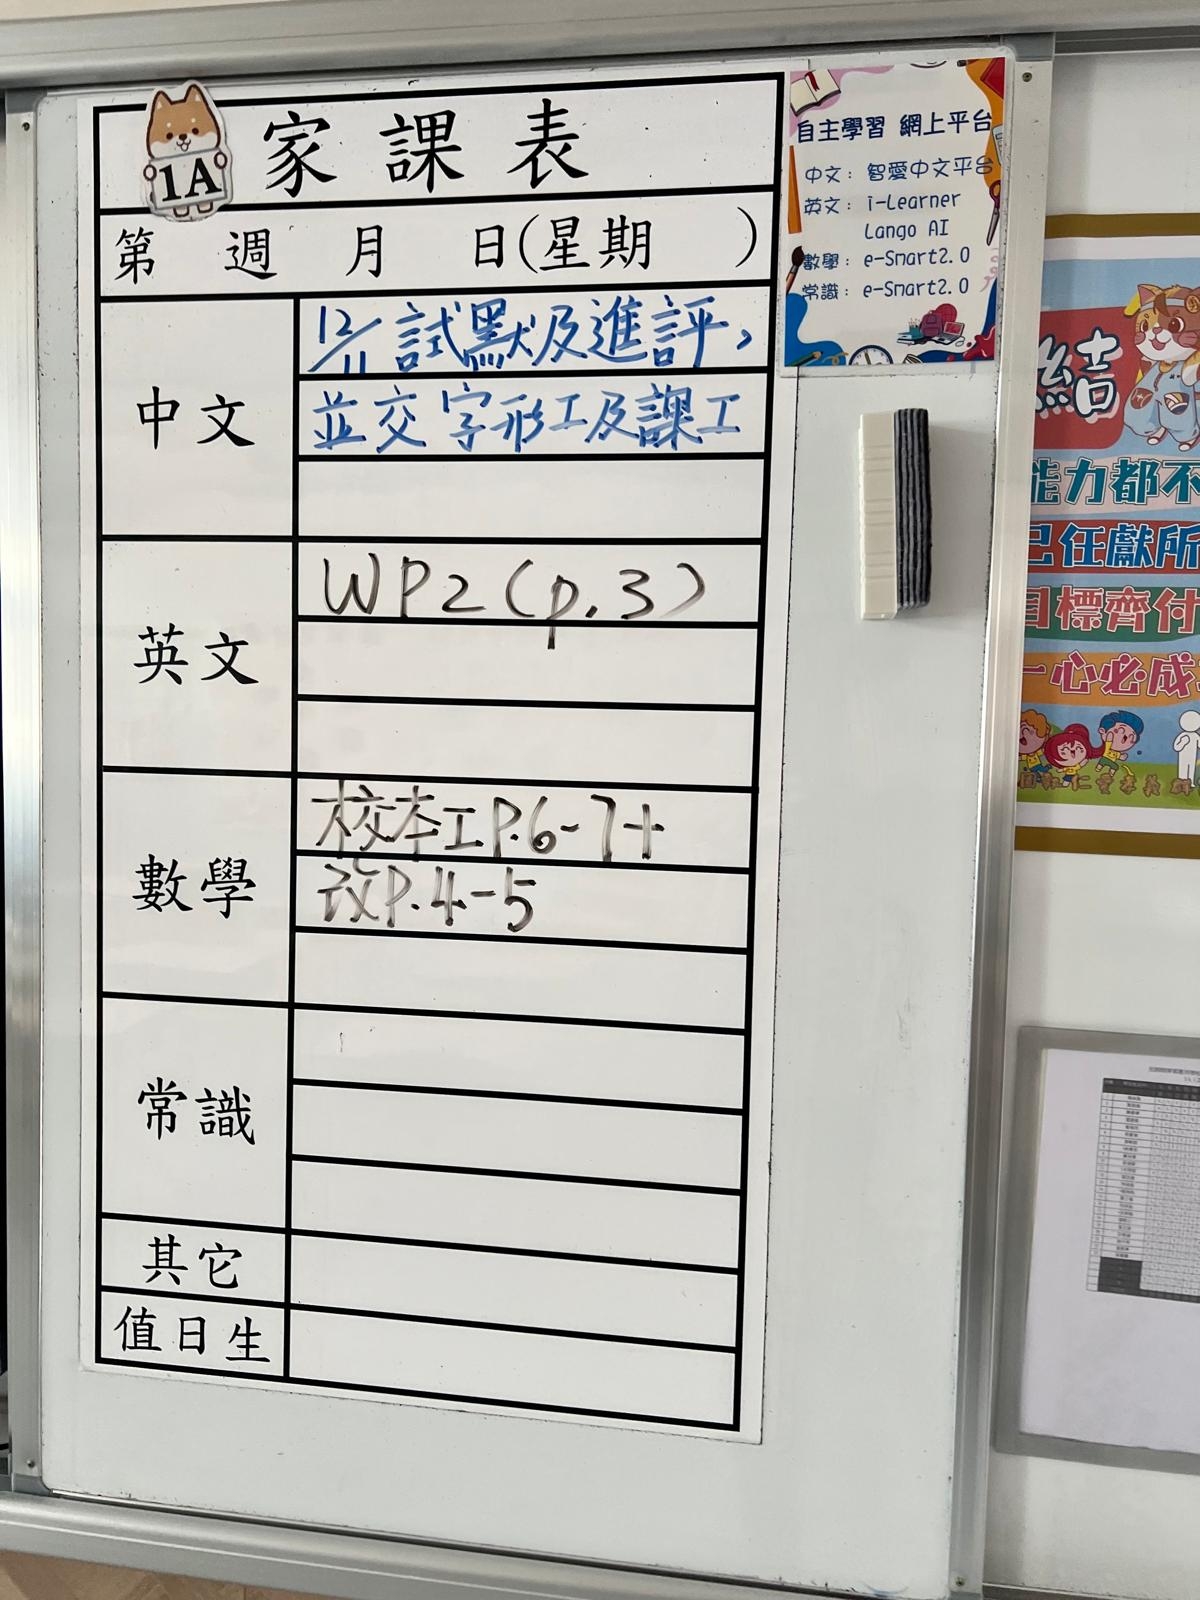 1A 家課表
第 週 月 日(星期 )
中文
12/11 試默及進評,
並交字形工及課工
英文
WP2 (p.3)
數學
校本工P.6-7+
改P.4-5
常識
其它
值日生
自主學習 網上平台
中文: 智愛中文平台
英文: i-Learner
Lango AI
數學: e-Smart2.0
常識: e-Smart2.0
結
能力都不
己任獻所
目標齊付
一心必成